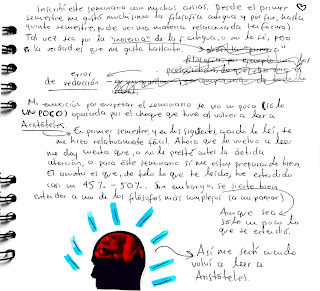 Inscribí este seminario con muchas ansias. Desde el primer
semestre me gustó muchísimo la filosofía antigua y por fin, hasta
quinto semestre, pude ver una materia relacionada de forma
Tal vez sea por la "inocencia" de la antigua, o no lo sé, pero
la verdad es que me gusta bastante.
Error
de redacción
Mi emoción por empezar el seminario se vio un poco (SÓLO
UN POCO) opacada por el choque que tuve al volver a leer a
Aristóteles.
En primer semestre, y en los siguientes cuando lo leí,
me hizo relativamente fácil. Ahora que lo vuelvo a leer
me doy cuenta que, o no le presté antes la debida
atención, o para este seminario sí me estoy preparando bien.
El asunto es que, de todo lo que he leído, he entendido
casi un 45% - 50%. Sin embargo, se siente bien
entender a uno de los filósofos más complejos (a mi parecer)
Aunque sea
sólo un poco lo
que he entendido.
Así me sentí cuando
volví a leer a
Aristóteles.